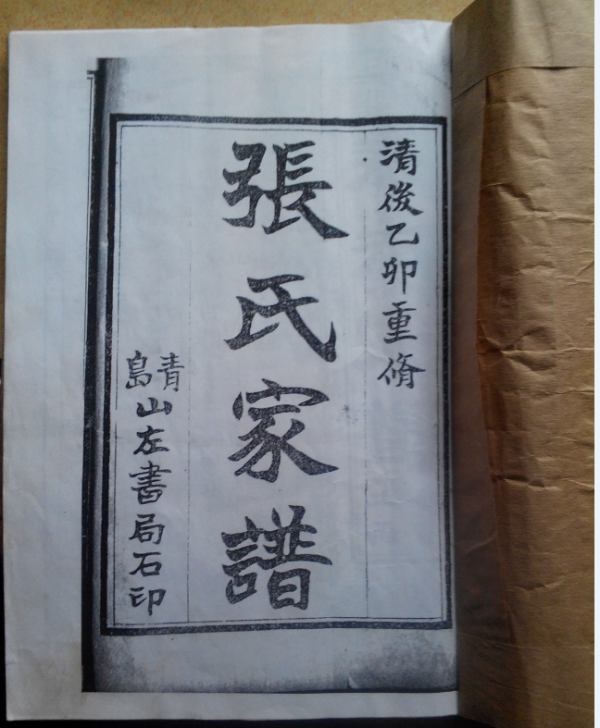 清後乙卯重脩
張氏家譜
青島山左書局石印